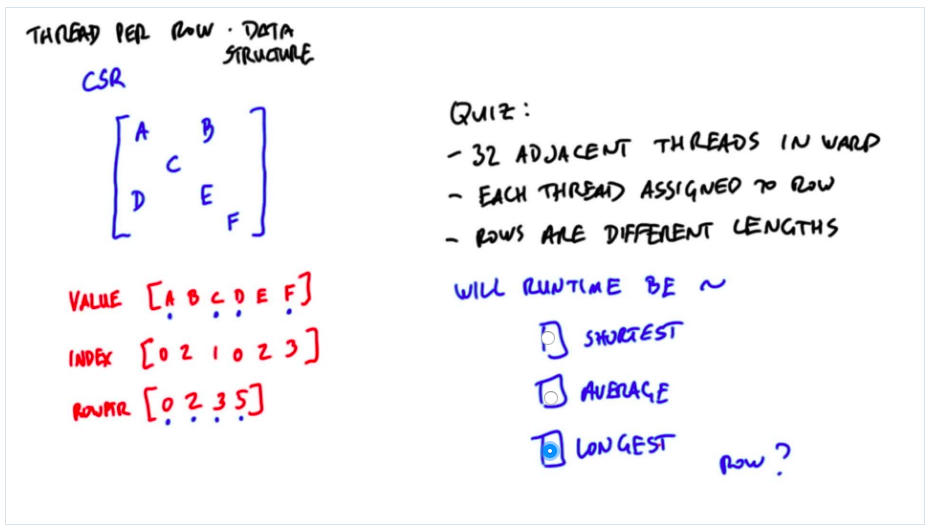 THREAD PER ROW · DATA
STRUCTURE
CSR
A B
C
D E
F
VALUE [A B C D E F]
INDEX [0 2 1 0 2 3]
ROWPTR [0 2 3 5]
QUIZ:
- 32 ADJACENT THREADS IN WARP
- EACH THREAD ASSIGNED TO ROW
- ROWS ARE DIFFERENT LENGTHS
WILL RUNTIME BE ~
SHORTEST
AVERAGE
LONGEST
ROW?